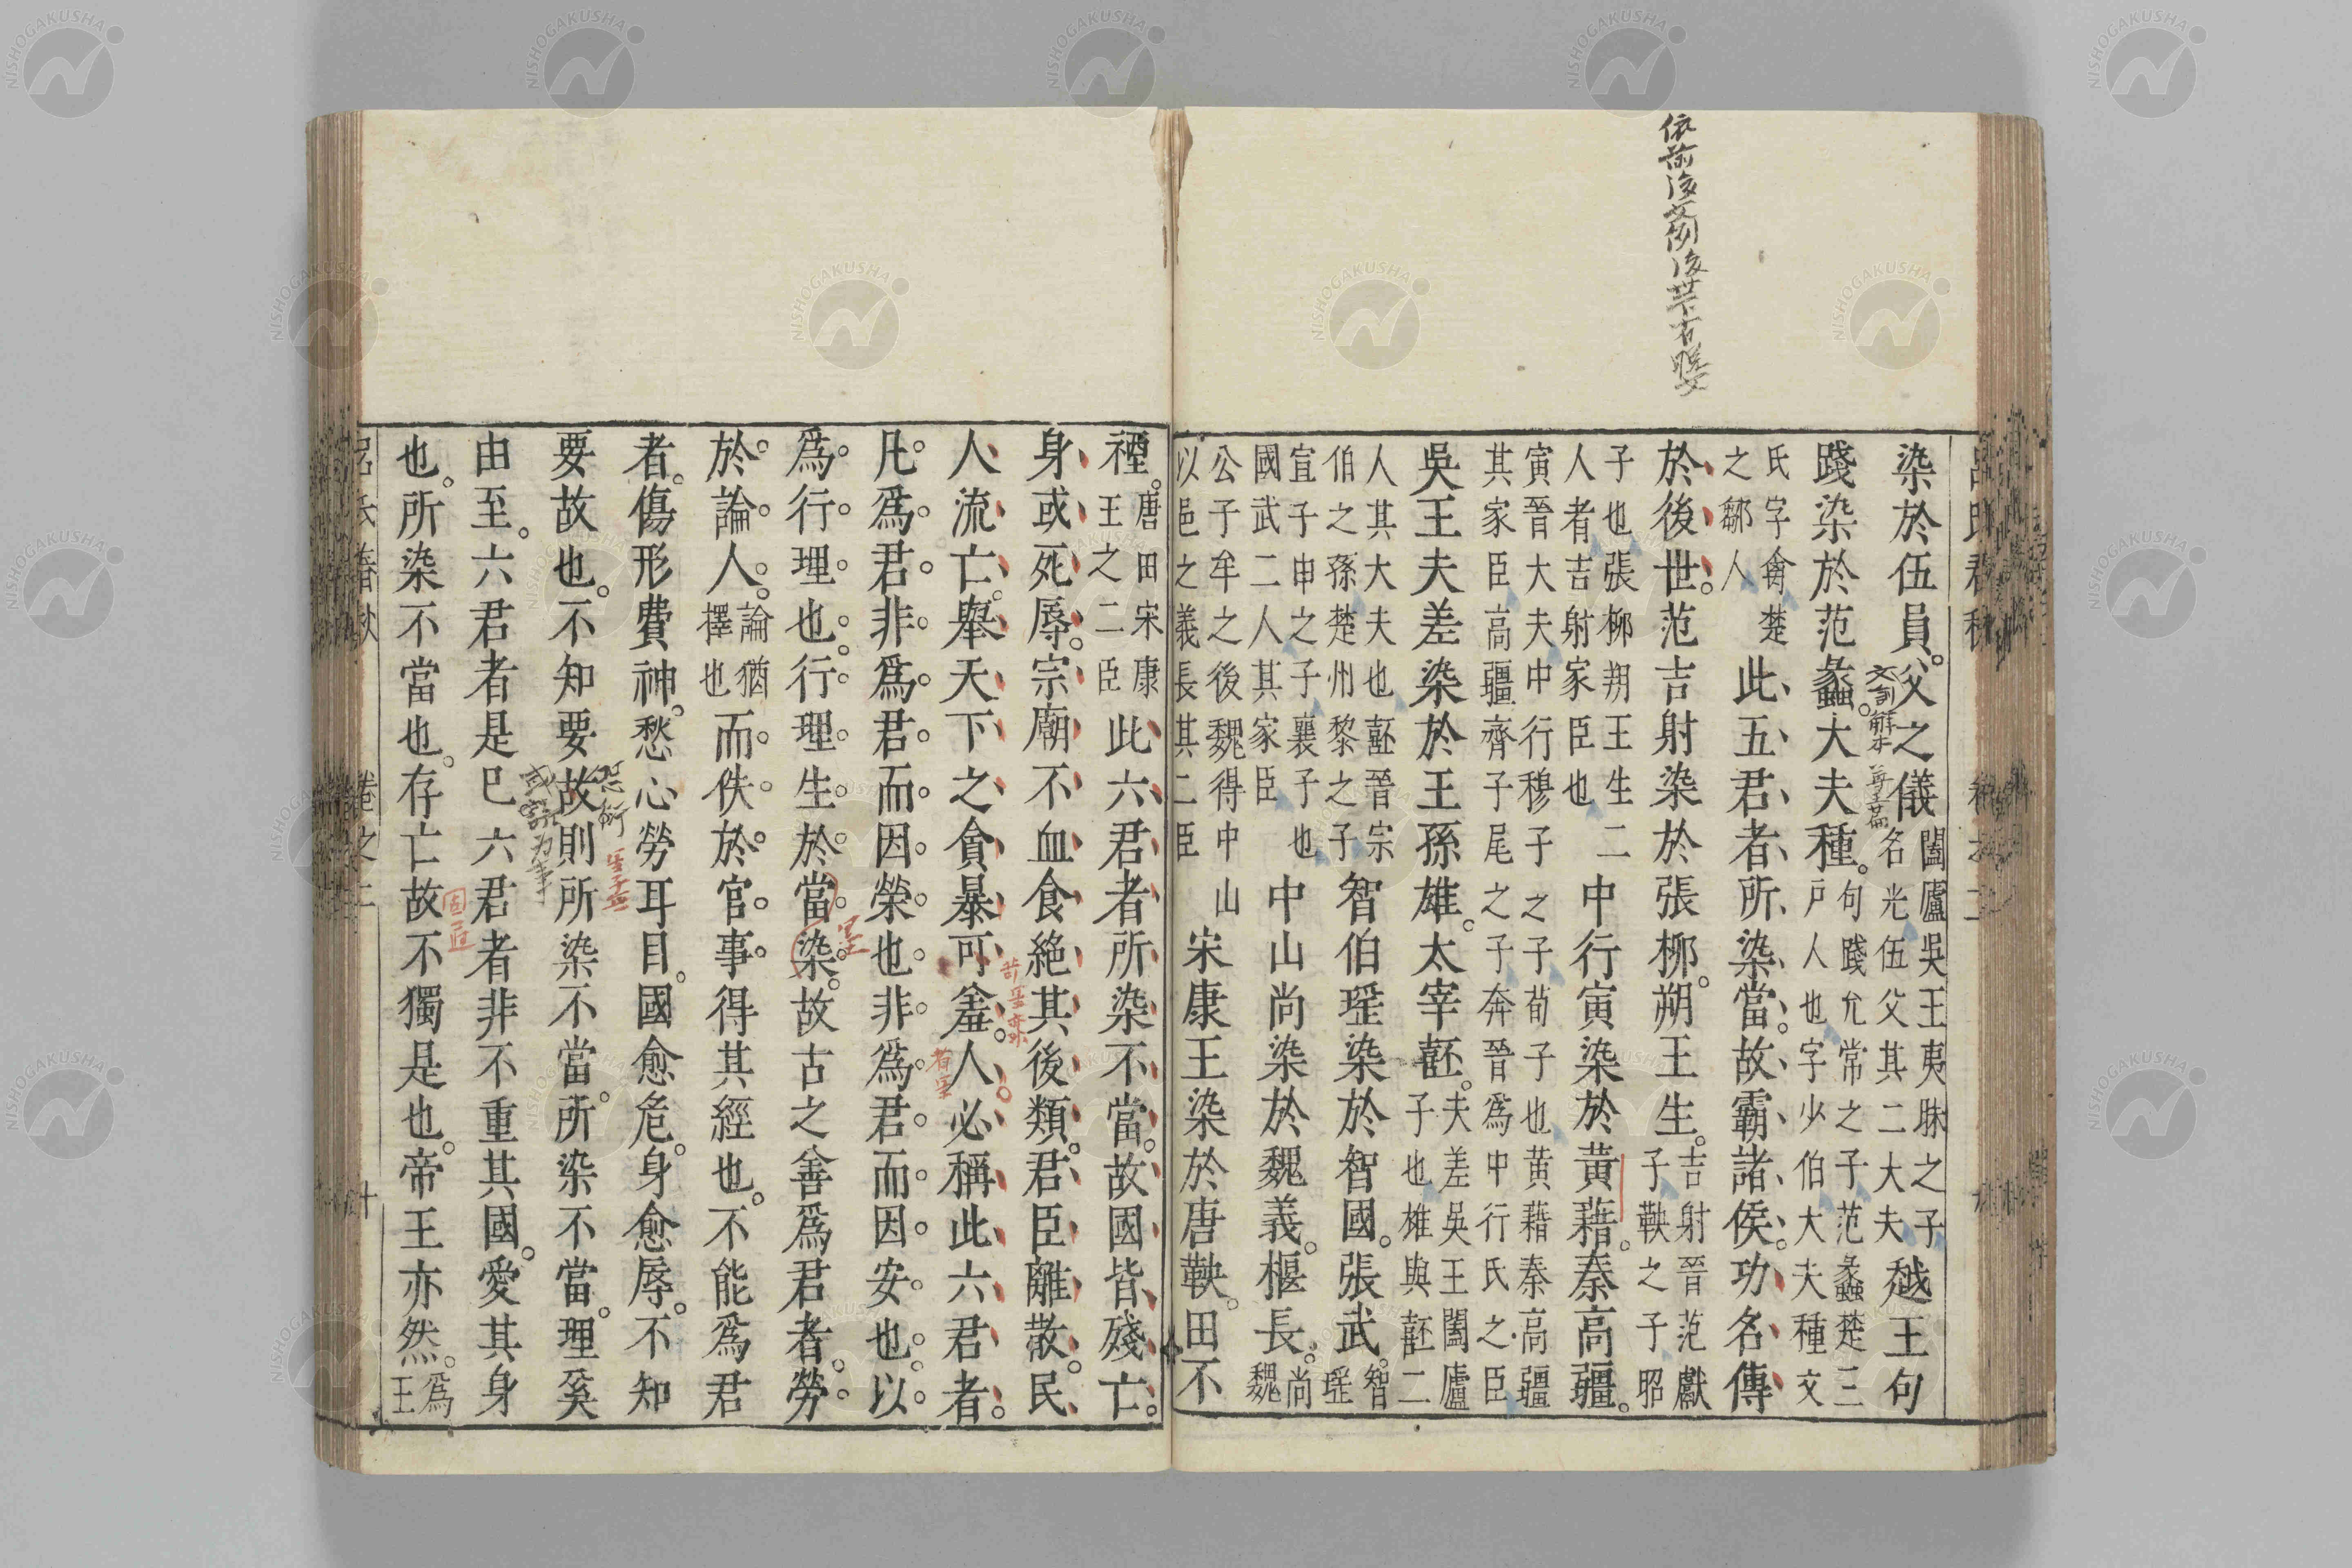 染於伍員。父之儀 闔廬吳王夷眛之子
名光伍父其二大夫 越王句
踐染於范蠡。大夫種。 句踐允常之子范蠡楚三
戶人也字少伯大夫種文
氏字禽楚
之鄒人 此五君者、所染當。故霸諸侯、功名傳
於後世。范吉射染於張柳。朔王生。 吉射晉范獻
子鞅之子昭
子也張柳朔王生二
人者吉射家臣也 中行寅染於黃藉。秦高彊。
寅晉大夫中行穆子之子荀子也黃藉秦高彊
其家臣高彊齊子尾之子奔晉爲中行氏之臣
吳王夫差染於王孫雄。太宰嚭。 夫差吳王闔廬
子也雄與嚭二
人其大夫也嚭晉宗
伯之孫楚州黎之子 智伯瑶染於智國。張武。 智
瑶
宣子申之子襄子也
國武二人其家臣 中山尚染於魏義。椻長。 尚
魏
公子牟之後魏得中山
以邑之義長其二臣 宋康王染於唐鞅。田不
禋。 唐田宋康
王之二臣 此六君者所染不當。故國皆殘亡。
身或死辱。宗廟不血食絕其後類。君臣離散。民
人流亡。舉天下之貪暴可羞。人必稱此六君者。
凡爲君非爲君而因榮也非爲君而因安也以
爲行理也。行理生於當染。故古之善爲君者。勞
於論人。 論猶
擇也 而佚於官事。得其經也。不能爲君
者。傷形費神。愁心勞耳目。國愈危。身愈辱。不知
要故也。不知要故則所染不當。所染不當。理奚
由至。六君者是巳六君者非不重其國。愛其身
也。所染不當也。存亡故不獨是也。帝王亦然。 爲
王
呂氏春秋 卷之二 十